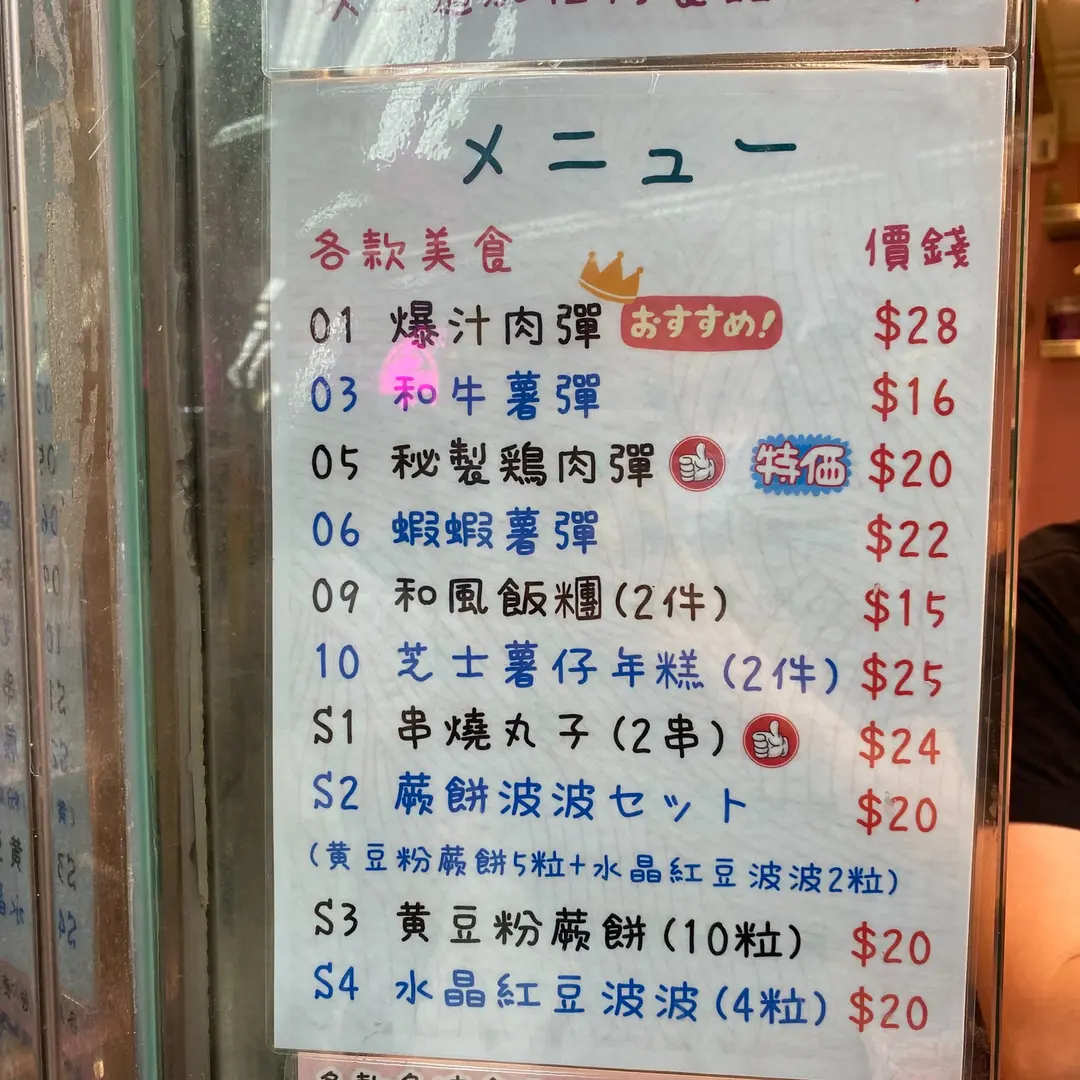 メニュー
各款美食 價錢
01 爆汁肉彈 おすすめ! $28
03 和牛薯彈 $16
05 秘製鶏肉彈 特価 $20
06 蝦蝦薯彈 $22
09 和風飯糰(2件) $15
10 芝士薯仔年糕(2件) $25
S1 串燒丸子(2串) $24
S2 蕨餅波波セット $20
(黄豆粉蕨餅5粒+水晶紅豆波波2粒)
S3 黄豆粉蕨餅(10粒) $20
S4 水晶紅豆波波(4粒) $20